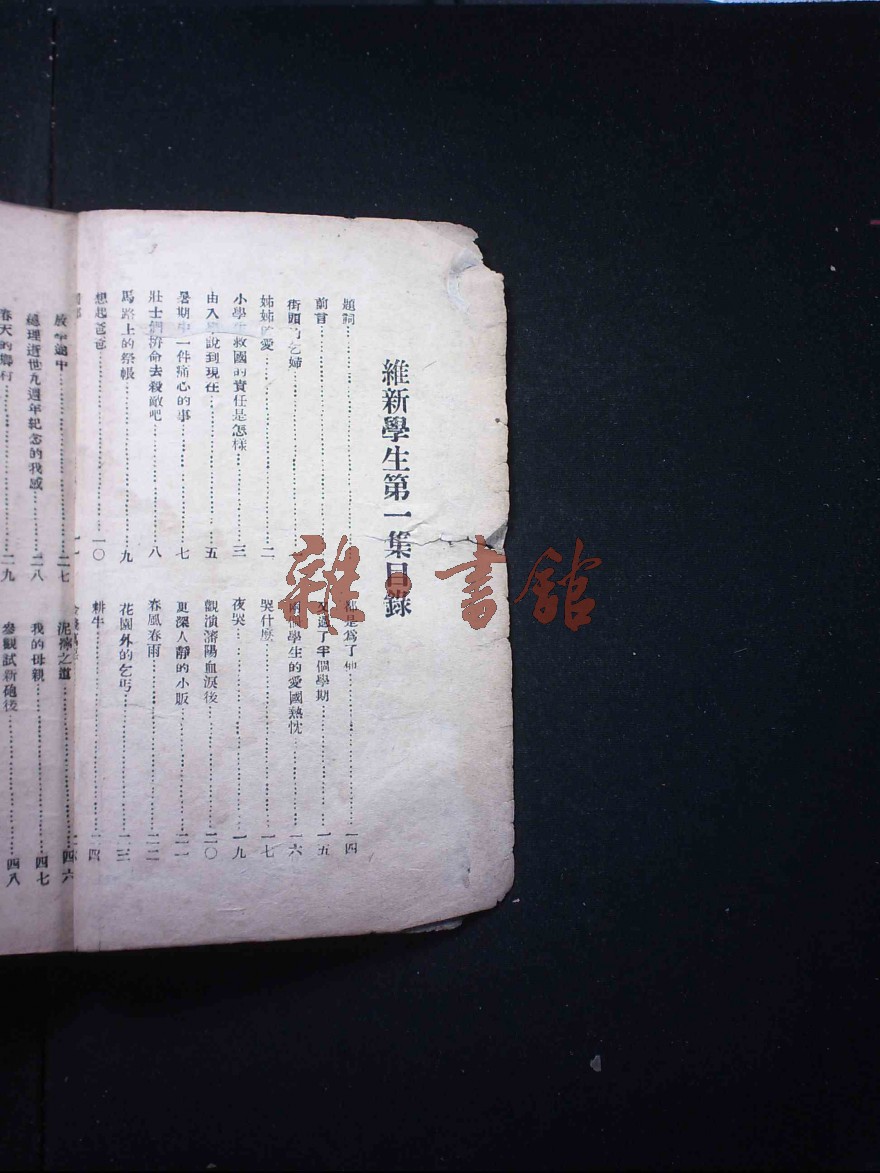 維新學生第一集目錄
題詞
前言
街頭乞婦 二
姊姊 愛
小學生救國的責任是怎樣 三
由入學說到現在 五
暑期中一件痛心的事 七
壯士們拚命去殺敵吧 八
馬路上的祭帳 九
想起爸爸 一〇
都是爲了他 一四
又過了半個學期 一五
學生的愛國熱忱 一六
哭什麽 一七
夜哭 一九
觀演瀋陽血淚後 二〇
更深人靜的小販 二一
春風春雨 二二
花園外的乞丐 二三
耕牛 二四
放學途中 二七
總理逝世九週年紀念的我感 二八
春天的鄉村 二九
泥 之道 四六
我的母親 四七
參觀試新砲後 四八
雜·書館